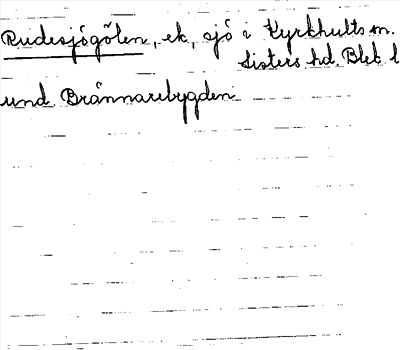 Rudesjögölen, ek, sjö i Kyrkhults sn.
Listers hd. Blek. l
und. Brännarebygden